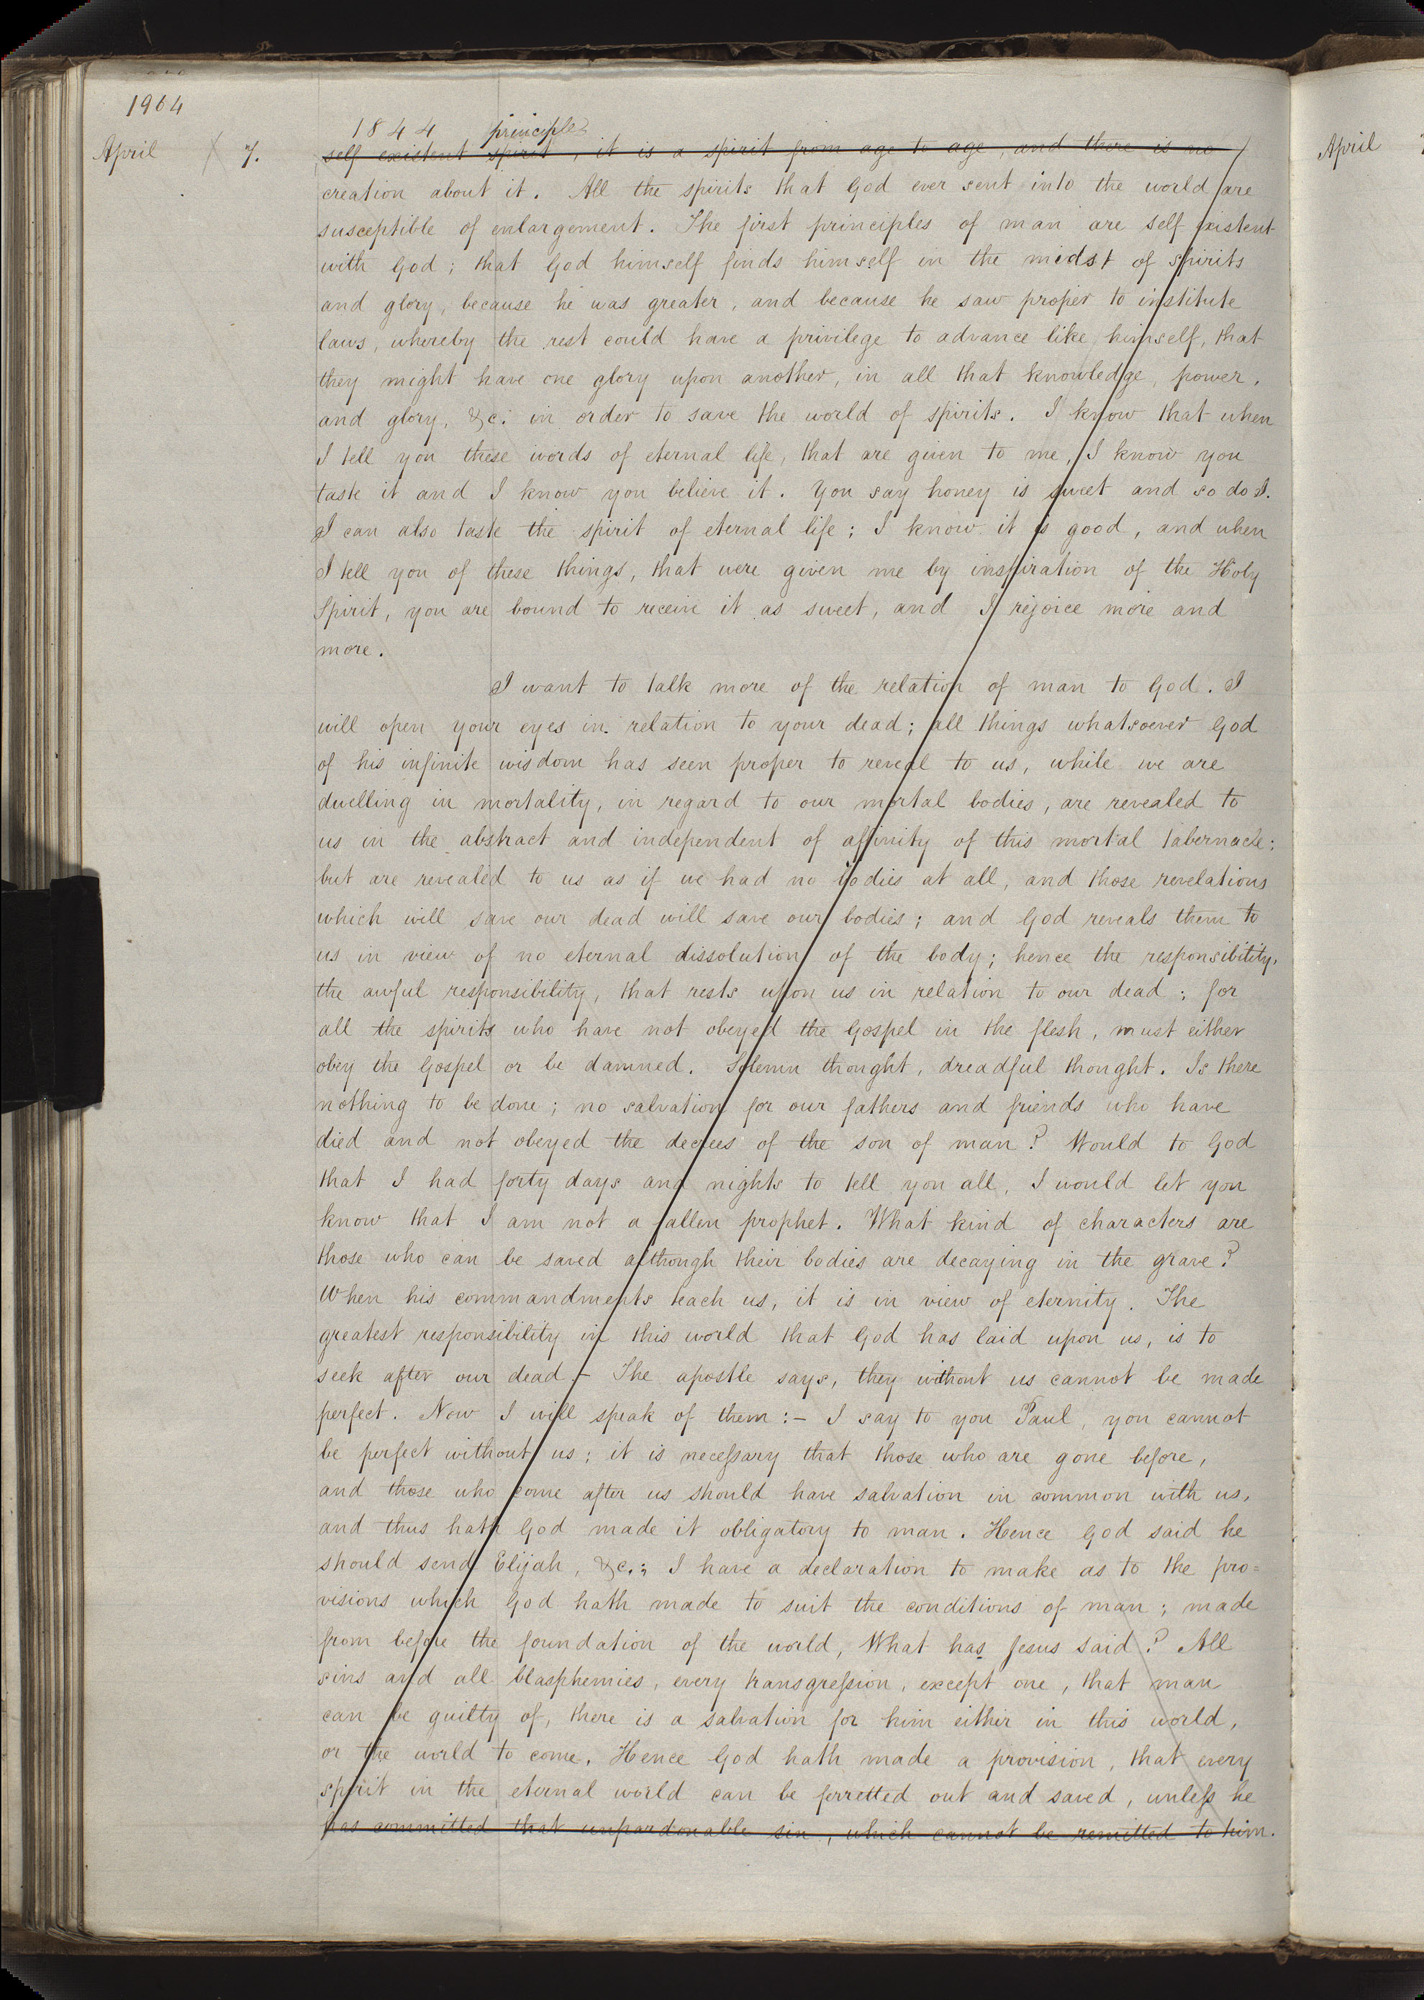 1964
1844 principles
April X 7. self existent spirit, it is a spirit from age to age, and there is no
creation about it. All the spirits that God ever sent into the world are
susceptible of enlargement. The first principles of man are self existent
with God; that God himself finds himself in the midst of spirits
and glory, because he was greater, and because he saw proper to institute
laws, whereby the rest could have a privilege to advance like himself, that
they might have one glory upon another, in all that knowledge, power,
and glory, &c. in order to save the world of spirits. I know that when
I tell you these words of eternal life, that are given to me, I know you
taste it and I know you believe it. You say honey is sweet and so do I.
I can also taste the spirit of eternal life; I know it is good, and when
I tell you of these things, that were given me by inspiration of the Holy
Spirit, you are bound to receive it as sweet, and I rejoice more and
more.
I want to talk more of the relation of man to God. I
will open your eyes in relation to your dead; all things whatsoever God
of his infinite wisdom has seen proper to reveal to us, while we are
dwelling in mortality, in regard to our mortal bodies, are revealed to
us in the abstract and independent of affinity of this mortal tabernacle;
but are revealed to us as if we had no bodies at all, and those revelations
which will save our dead will save our bodies; and God reveals them to
us in view of no eternal dissolution of the body; hence the responsibility,
the awful responsibility, that rests upon us in relation to our dead; for
all the spirits who have not obeyed the Gospel in the flesh, must either
obey the Gospel or be damned. Solemn thought, dreadful thought. Is there
nothing to be done; no salvation for our fathers and friends who have
died and not obeyed the decrees of the son of man? Would to God
that I had forty days and nights to tell you all, I would let you
know that I am not a fallen prophet. What kind of characters are
those who can be saved although their bodies are decaying in the grave?
When his commandments teach us, it is in view of eternity. The
greatest responsibility in this world that God has laid upon us, is to
seek after our dead – The apostle says, they without us cannot be made
perfect. Now I will speak of them:– I say to you Paul, you cannot
be perfect without us; it is necessary that those who are gone before,
and those who come after us should have salvation in common with us,
and thus hath God made it obligatory to man. Hence God said he
should send Elijah, &c.; I have a declaration to make as to the pro=
visions which God hath made to suit the conditions of man; made
from before the foundation of the world, What has Jesus said? All
sins and all blasphemies, every transgression, except one, that man
can be guilty of, there is a salvation for him either in this world,
or the world to come. Hence God hath made a provision, that every
spirit in the eternal world can be ferretted out and saved, unless he
has committed that unpardonable sin, which cannot be remitted to him.
April